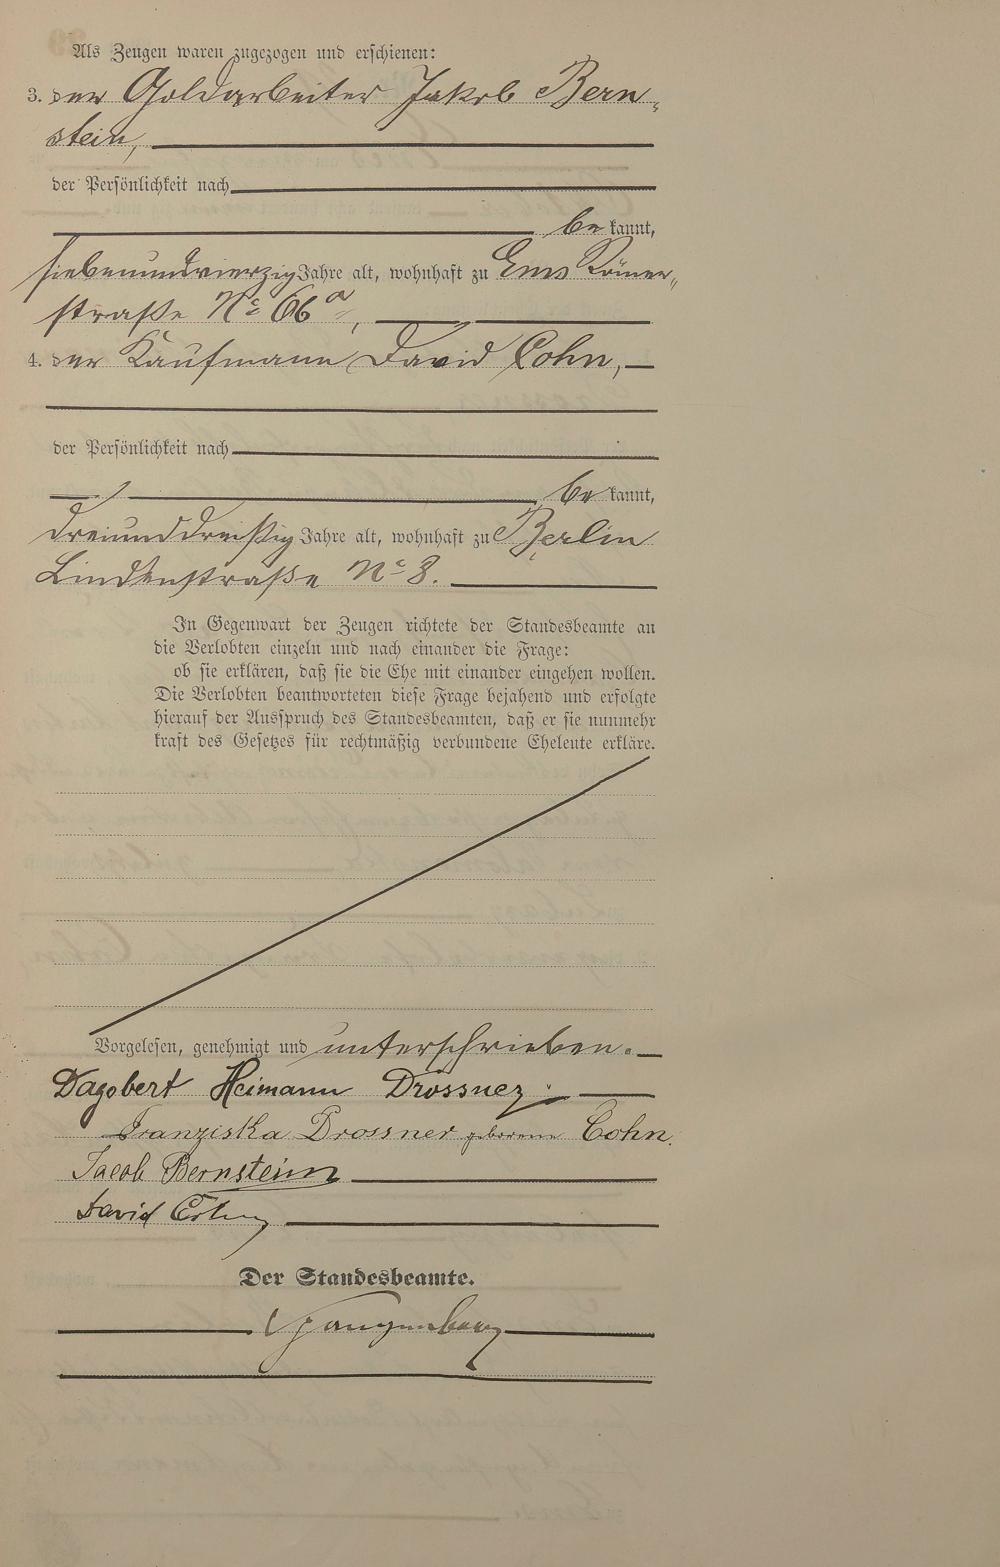 Als Zeugen waren zugezogen und erschienen:
3. der Goldarbeiter Jakob Bern-
stein,
der Persönlichkeit nach
be kannt,
siebenundvierzig Jahre alt, wohnhaft zu Ems Römer-
straße No 66a,
4. der Kaufmann David Cohn,
der Persönlichkeit nach
be kannt,
dreiunddreißig Jahre alt, wohnhaft zu Berlin
Lindenstraße No 8.
In Gegenwart der Zeugen richtete der Standesbeamte an
die Verlobten einzeln und nach einander die Frage:
ob sie erklären, daß sie die Ehe mit einander eingehen wollen.
Die Verlobten beantworteten diese Frage bejahend und erfolgte
hierauf der Ausspruch des Standesbeamten, daß er sie nunmehr
kraft des Gesetzes für rechtmäßig verbundene Eheleute erkläre.
Vorgelesen, genehmigt und unterschrieben.
Dagobert Heimann Drossner.
Franziska Drossner geborene Cohn.
Jacob Bernstein
David Cohn
Der Standesbeamte.
Spangenberg